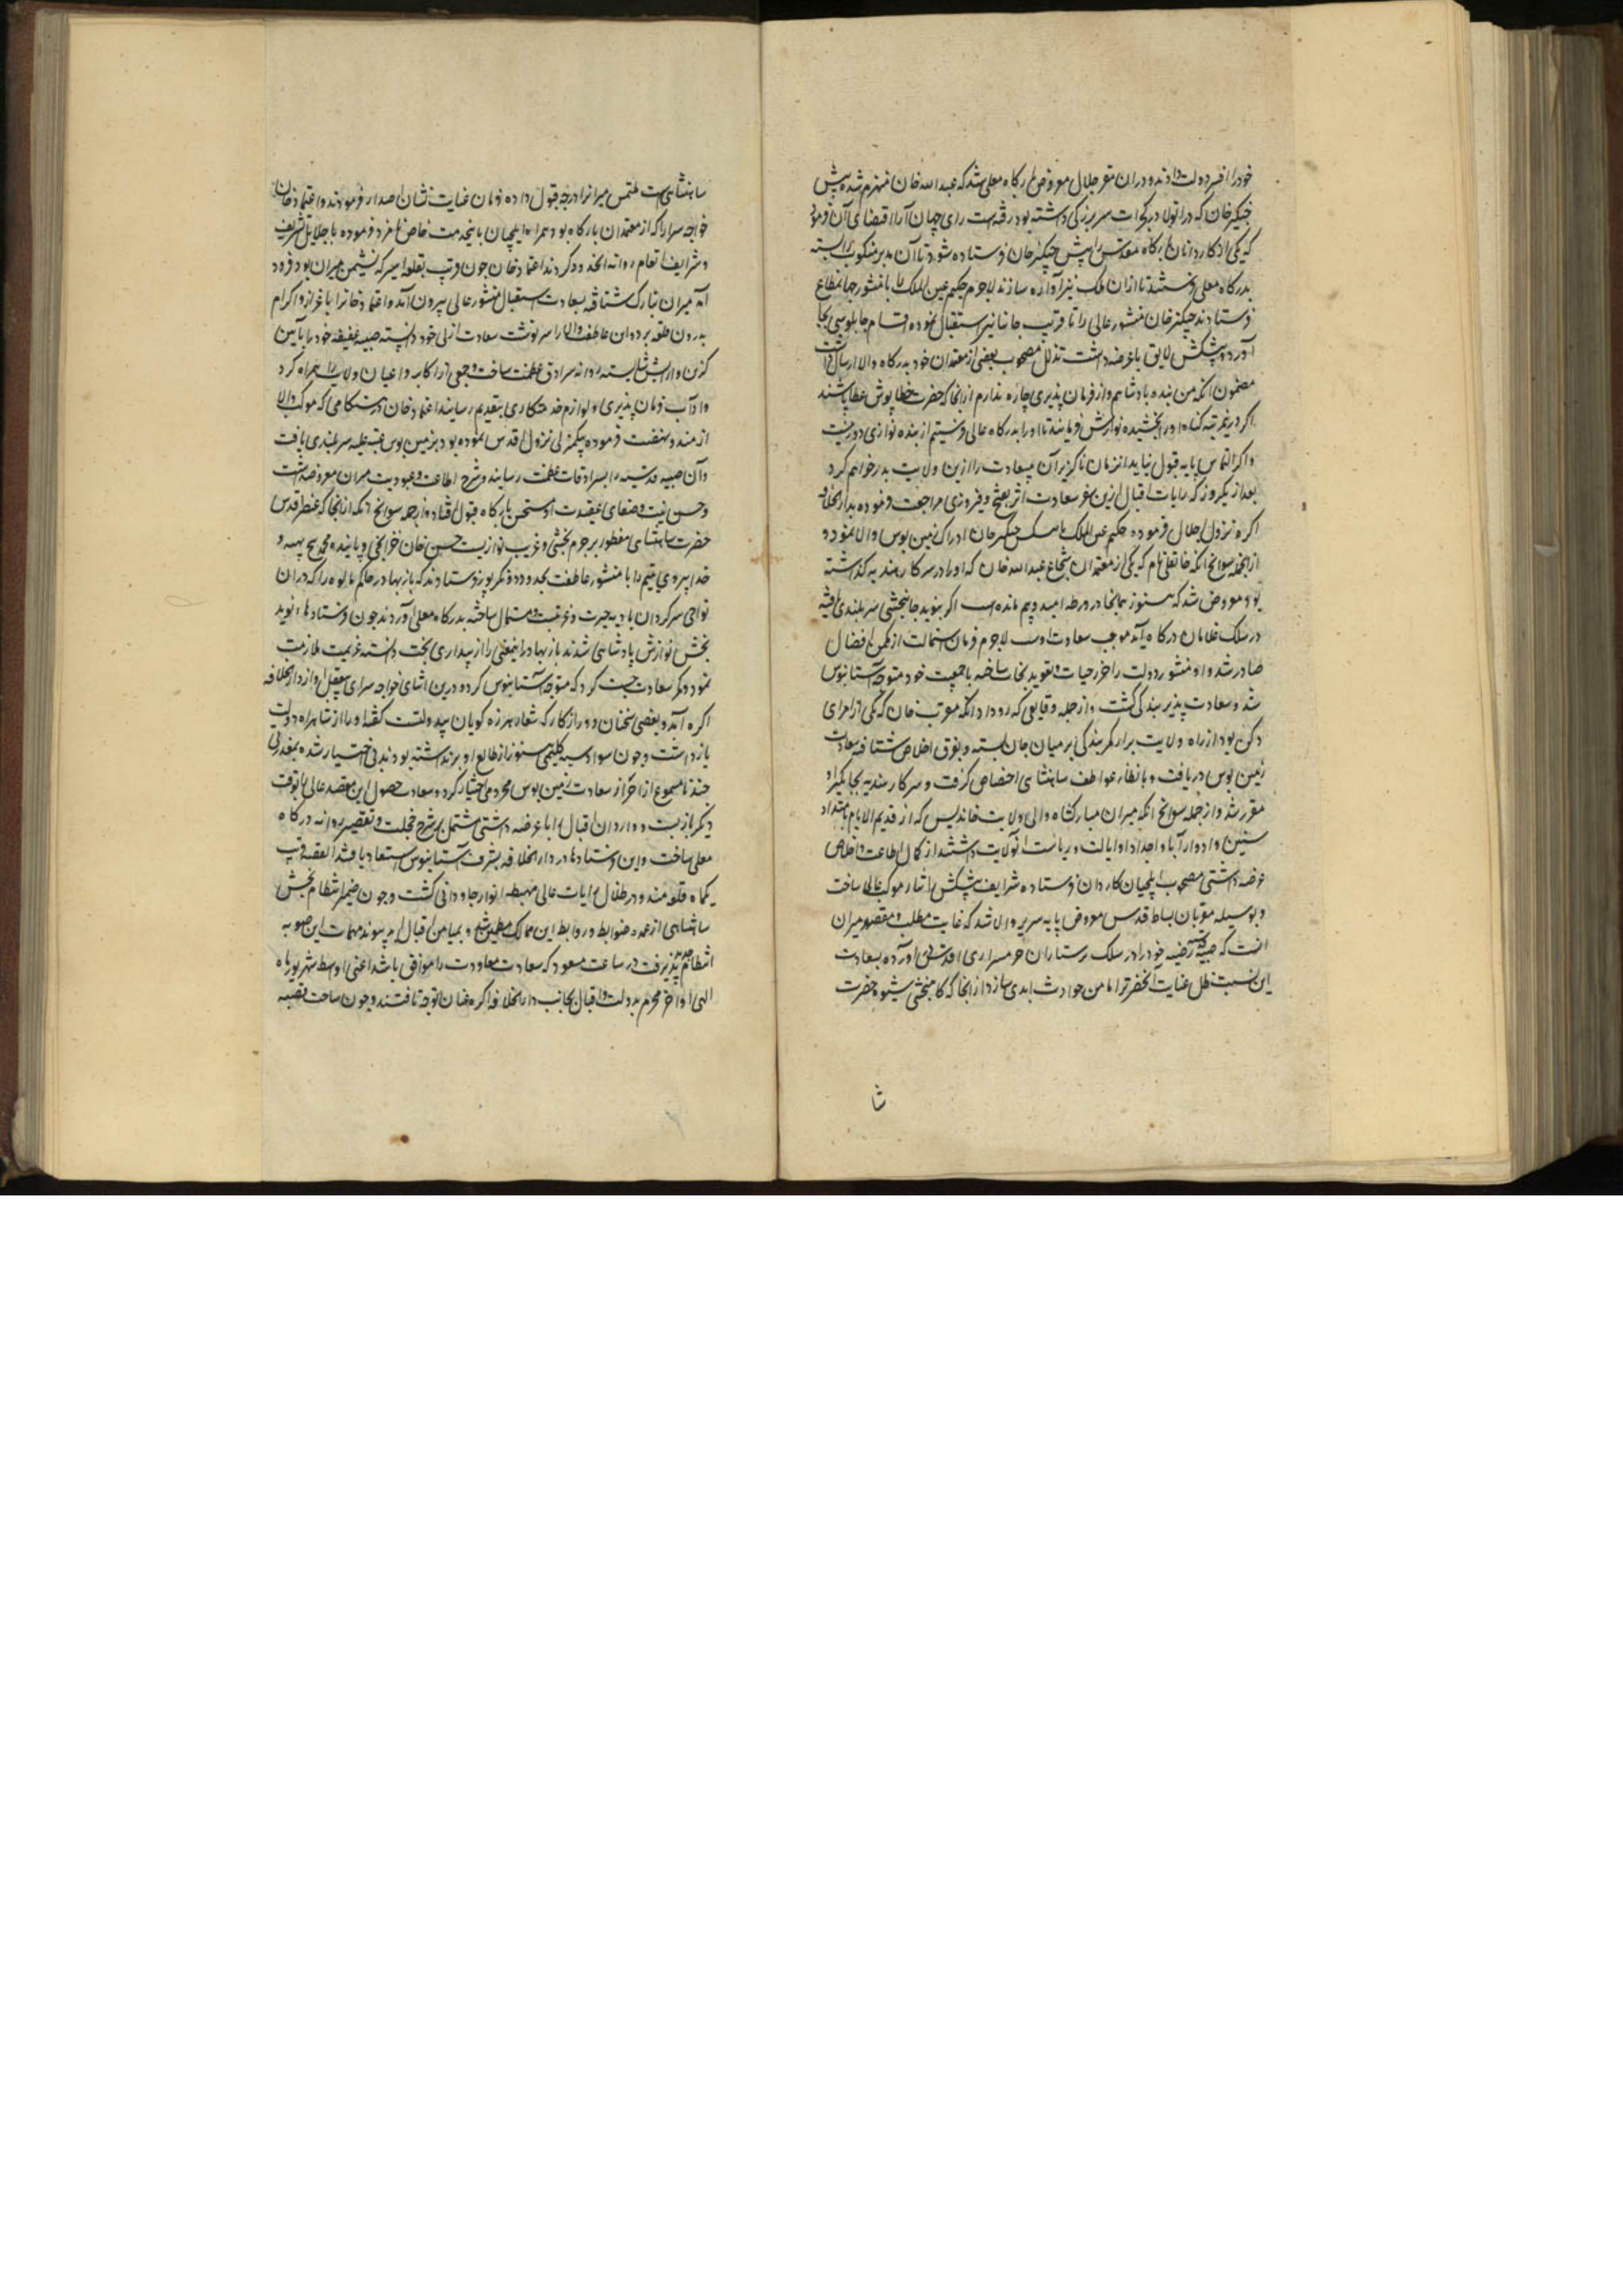 خود را افسر دولت دادند و دران مقر جلال معروض درگاه معلی شد که عبدالله خان منهزم شده پیش
چنگیز خان که در انولا در کجرات سر بزرکی داشته بود رفته است رای جهان آرا اقتضای آن فرمود
که یکی از کاردانان درکاه مقدس را پیش چنکیز خان فرستاده شود تا آن مدبر منکوب را بسته
بدرکاه معلی بفرستند تا ازان ملک نیز آواره سازند لاجرم حکیم عین الملک را با منشور جهانمطاع
فرستادند چنکیز خان منشور عالی را تا قریب جانپانیر استقبال نموده اقسام چابلوسی بجا
آورد و پیشکش لایق با عرضه داشت تذلل مصحوب بعضی از معتمدان خود بدرکاه والا ارسال داشت
مضمون انکه من بنده پادشاهم و از فرمان پذیری چاره ندارم ازانجا که حضرت خطاپوش عطاپاشند
اکر درینمرتبه کناه او را بخشیده نوازش فرمایند تا او را بدرکاه عالی فرستیم از بنده نوازی دور نیست
و اکر التماس بپایه قبول نیاید انزمان ناکزیر آن بیسعادت را ازین ولایت بدر خواهم کرد
بعد از یکروز که رایات اقبال ازین سفر سعادت اثر بفتح و فیروزی مراجعت فرموده بدار الخلافه
اکره نزول اجلال فرموده حکیم عین الملک با پیشکش چنکیز خان ادراک زمین بوس والا نمود و
از جمله سوانح انکه خانقلی نام که یکی از معتمدان شجاع عبدالله خان که او را در سرکار هندیه کذاشته
بود معروض شد که هنوز همانجا در ورطه امید و بیم مانده است اکر بنوید جانبخشی سربلندی یافته
در سلک غلامان درکاه آید موجب سعادت اوست لاجرم فرمان استمالت از مکمن افضال
صادر شد و او منشور دولت را حرز حیات و تعویذ نجات ساخته با جمعیت خود متوجه آستانبوس
شد و سعادت پذیر بندکی کشت و از جمله وقایعی که رو داد انکه مقرب خان که یکی از امرای
دکن بود از راه ولایت برار کمر بندکی بر میان جان بسته و بفرق اخلاص شتافته سعادت
زمین بوس دریافت و بانظار عواطف شاهنشاهی اختصاص کرفت و سرکار هندیه بجایکیر او
مقرر شد و از جمله سوانح انکه میران مبارکشاه والی ولایت خاندیس که از قدیم الایام بامتداد
سنین و ادوار آبا و اجداد او ایالت و ریاست انولایت داشتند از کمال اطاعت و اخلاص
عرضه داشتی مصحوب ایلچیان کاردان فرستاده شرایف پیشکش نثار موکب عالی ساخت
و بوسیله مقربان بساط قدس معروض پایه سریر والا شد که غایت مطلب و مقصود میران
انست که صبیه رضیه خود را در سلک پرستاران حرمسرای اقدس آورده بسعادت
این نسبت ظل عنایت آنحضرت را مامن حوادث ابدی سازد ازانجا که کامبخشی شیوه حضرت
شا
شاهنشاهیست ملتمس میران را درجه قبول داده فرمان عنایت نشان اصدار فرمودند و اعتماد خان
خواجه سرا را که از معتمدان بارکاه بود همراه ایلچیان باینخدمت خاص نامزد فرموده با جلایل تشریف
و شرایف انعام روانه انحدود کردند اعتماد خان چون قریب بقلعه اسیر که نشیمن میران بود فرود
آمد میران مبارک شتافته بسعادت استقبال منشور عالی بیرون آمد و اعتماد خان را باعزاز و اکرام
بدرون قلعه برد و ان عاطفت والا را سرنوشت سعادت ازلی خود دانسته صبیه عفیفه خود را بآیین
کزین و ارایش شایسته روانه سرادق عظمت ساخت و جمعی از اکابر و اعیان ولایت را همراه کرد
و آداب فرمان پذیری و لوازم خدمتکاری بتقدیم رسانید اعتماد خان در هنکامی که موکب والا
از مندو نهضت فرموده بیکمنزلی نزول اقدس نموده بود بزمین بوس عتبه علیه سربلندی یافت
و آن صبیه قدسیه را بسرادقات عظمت رسانید و شرح اطاعت و عبودیت میران معروضداشت
و حسن نیت و صفای عقیدت او مستحسن بارکاه قبول افتاد و از جمله سوانح انکه ازانجا که عنصر قدسی
حضرت شاهنشاهی مفطور بر جرم بخشی و غریب نوازیست حسن خان خزانچی و پاینده محمد پنج بهیه و
خدابیردی یتیم را با منشور عاطفت بحدود دونکرپور فرستادند که بازبهادر حاکم مالوه را که دران
نواحی سرکردان بادیه حیرت و غربت است مستمال ساخته بدرکاه معلی آوردند چون فرستادها نوید
بخش نوازش پادشاهی شدند بازبهادر اینمعنی را از بیداری بخت دانسته عزیمت ملازمت
نمود و کمر سعادت چست کرد که متوجه آستانبوس کردد درین اثنا خواجه سرای بیعقل او از دارالخلافه
اکره آمد و بعضی سخنان دور از کار که شعار هرزه کویان بیدولتست کفته او را از شاهراه دولت
بازداشت و چون سواد سیه کلیمی هنوز از طالع او برنداشته بودند بی اختیار شده بعذری
چند نامسموع از احراز سعادت زمین بوس محرومی اختیار کرد و سعادت حصول این مقصد عالی را بوقت
دیکر بازبست و واردان اقبال را با عرضه داشتی مشتمل بر شرح خجلت و تقصیر روانه درکاه
معلی ساخت و این فرستادها در دارالخلافه بشرف آستانبوس استعداد یافتند القصه قریب
یکماه قلعه مندو در ظلال رایات عالی مهبط انوار جاودانی کشت و چون ضمیر انتظام بخش
شاهنشاهی از عمده ضوابط و روابط این ممالک مطمئن شد و بمیامن اقبال ابد پیوند مهمات این صوبه
انتظام پذیرفت در ساعت مسعود که سعادت معاودت را موافق باشد اعنی اواسط شهریور ماه
الهی اواخر محرم بدولت و اقبال بجانب دارالخلافه اکره عنان توجه تافتند و چون ساحت قصبه